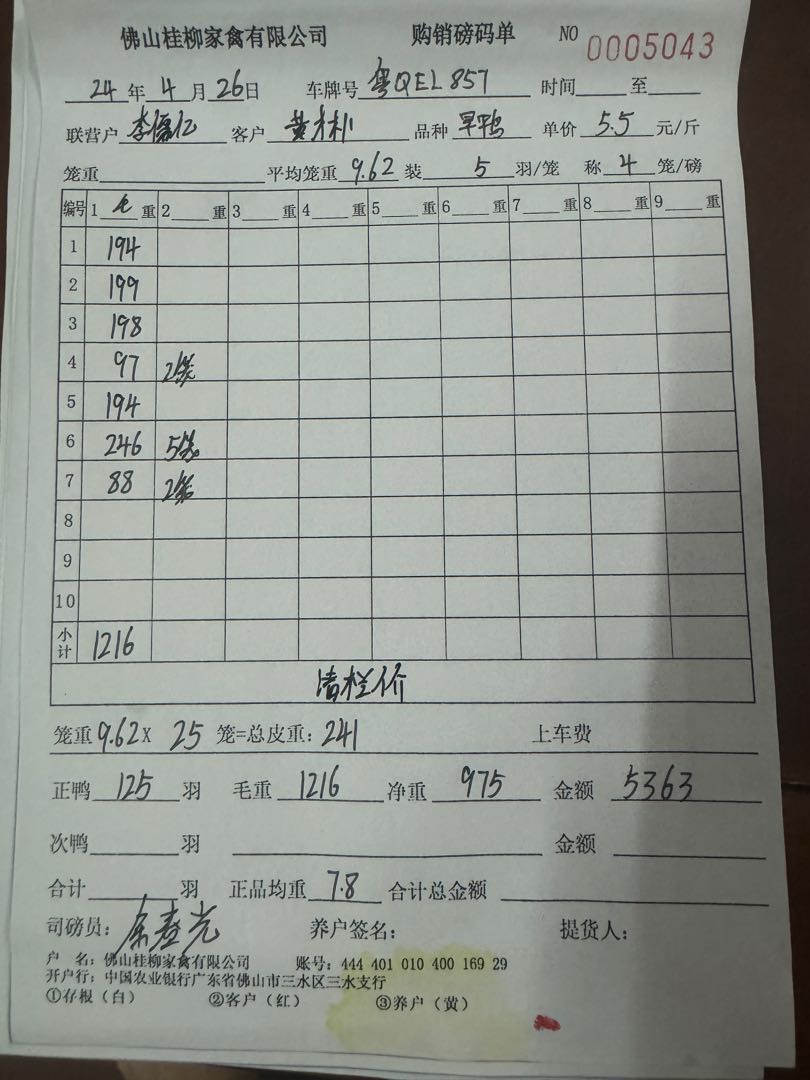 佛山桂柳家禽有限公司 购销磅码单 NO 0005043
24年4月26日 车牌号 粤QEL857 时间 至
联营户 李儒亿 客户 品种 旱鸭 单价 5.5 元/斤
笼重 平均笼重 9.62 装 5 羽/笼 称 4 笼/磅
编号 1 毛 重 2 重 3 重 4 重 5 重 6 重 7 重 8 重 9 重
1 194
2 199
3 198
4 97 2笼
5 194
6 246 5笼
7 88 2笼
8
9
10
小计 1216
清栏价
笼重 9.62 X 25 笼=总皮重: 241 上车费
正鸭 125 羽 毛重 1216 净重 975 金额 5363
次鸭 羽 金额
合计 羽 正品均重 7.8 合计总金额
司磅员: 养户签名: 提货人:
户 名: 佛山桂柳家禽有限公司 账号: 444 401 010 400 169 29
开户行: 中国农业银行广东省佛山市三水区三水支行
①存根(白) ②客户(红) ③养户(黄)